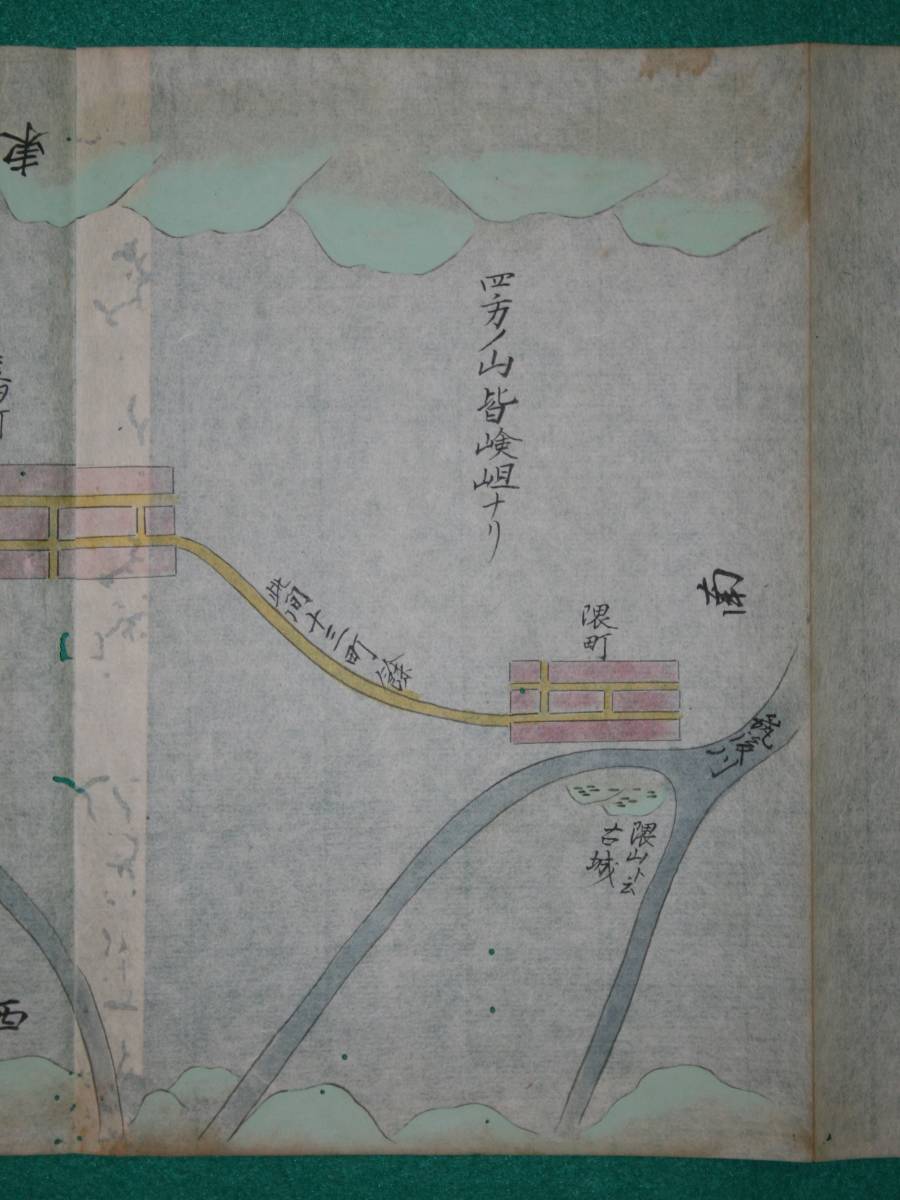 南
四方ノ山皆嶮岨ナリ
隈町
筑後川
隈山ト云
古城
此間十三町餘
東
西